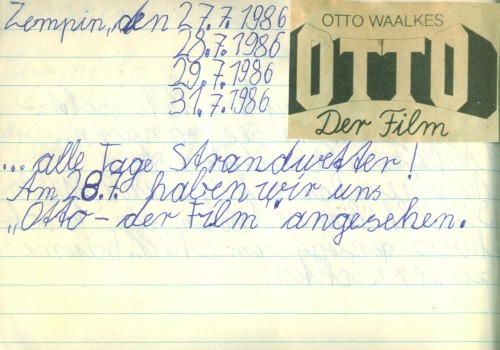 Zempin, den 27.7.1986
28.7.1986
29.7.1986
31.7.1986
OTTO WAALKES
OTTO
Der Film
... alle Tage Strandwetter!
Am 28.7. haben wir uns
„Otto – der Film“ angesehen.